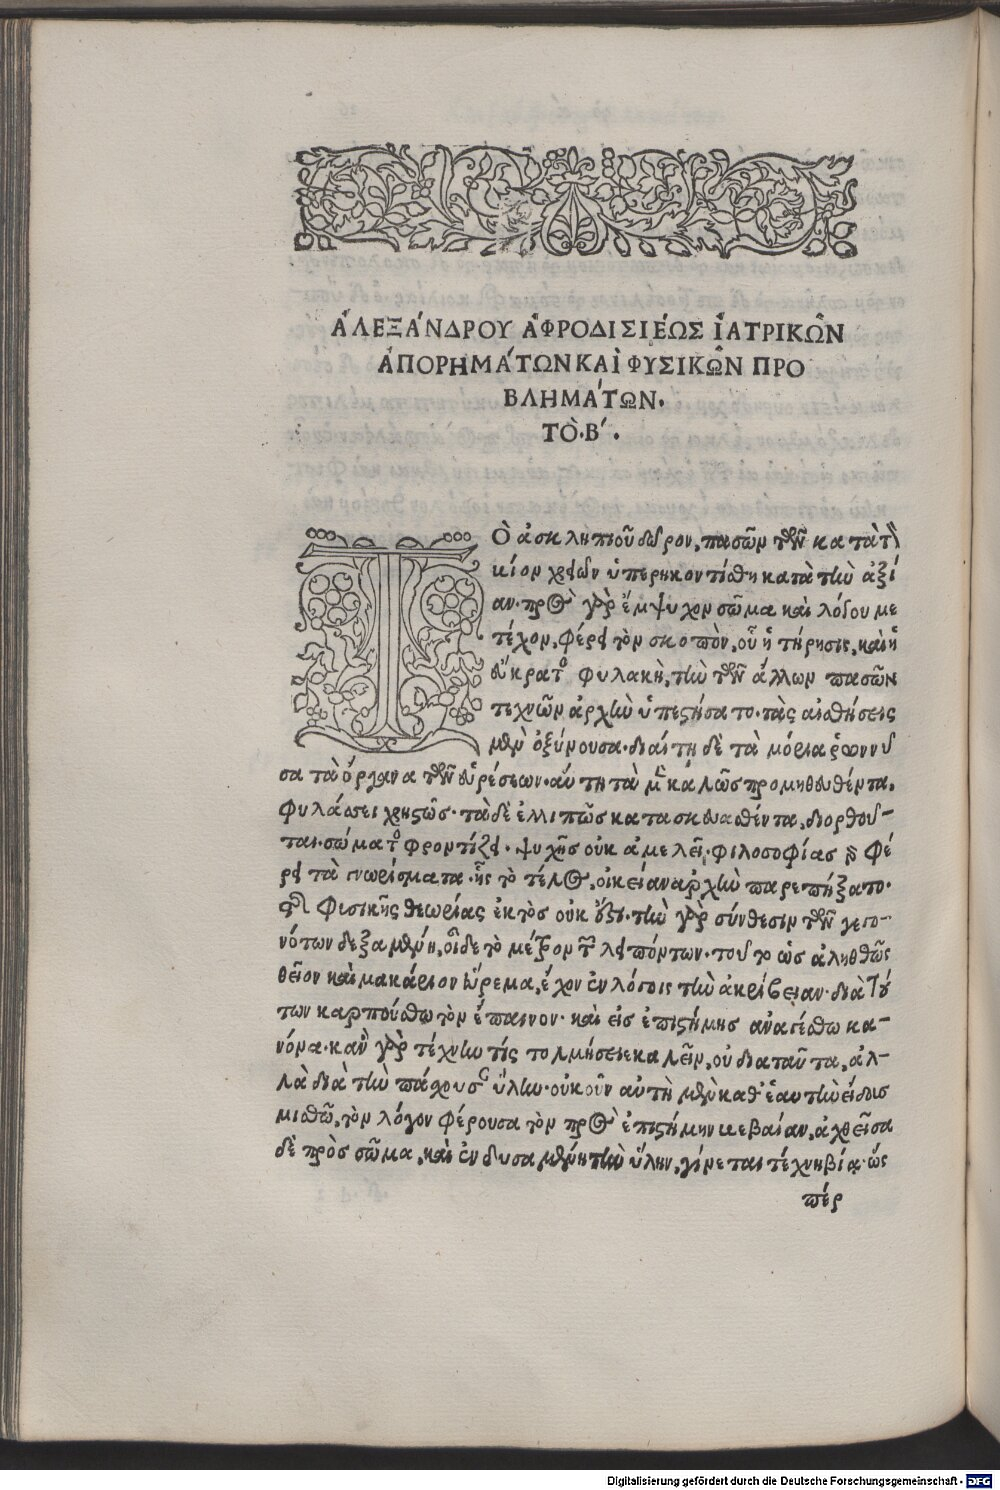 ἈΛΕΞΆΝΔΡΟΥ ἈΦΡΟΔΙΣΙΈΩΣ ἸΑΤΡΙΚΩ͂Ν
ἈΠΟΡΗΜΆΤΩΝ ΚΑῚ ΦΥΣΙΚΩ͂Ν ΠΡΟ
ΒΛΗΜΆΤΩΝ.
ΤῸ. Β΄.
ΤῸ ἀσκληπιοῦ δῶρον, πασῶν τῶν κατὰ τὸν
βίον χρειῶν ὑπερηκοντίσθη κατὰ τὴν ἀξί
αν. πρὸς γὰρ ἔμψυχον σῶμα καὶ λόγου με
τέχον, φέρει τὸν σκοπὸν, οὗ ἡ τήρησις, καὶ ἡ
φυλακὴ, τὴν τῶν ἄλλων πασῶν
τεχνῶν ἀρχὴν ὑπεστήσατο. τὰς αἰσθήσεις
μὲν ὀξύνουσα. διαίτῃ δὲ τὰ μόρια ῥωννύ
σα τὰ ὄργανα τῶν εὑρέσεων. αὕτη τὰ μὲν καλῶς προμηθευθέντα,
φυλάσσει χρηστῶς. τὰ δὲ ἐλλιπῶς κατασκευασθέντα, διορθοῦ-
ται. σώματος φροντίζει. ψυχῆς οὐκ ἀμελεῖ. φιλοσοφίας δὲ φέ
ρει τὰ γνωρίσματα. ἧς τὸ τέλος, οἰκείαν ἀρχὴν παρεπήξατο.
τῆς φυσικῆς θεωρίας ἐκτὸς οὐκ ἔστι. τὴν γὰρ σύνθεσιν τῶν γεγο-
νότων δεξαμένη, οἶδε τὸ μέτρον τῶν λειπόντων. τοῦτο ὡς ἀληθῶς
θεῖον καὶ μακάριον εὕρεμα, ἔχον ἐν λόγοις τὴν ἀκρίβειαν. διὰ τού
των καρπούσθω τὸν ἔπαινον. καὶ εἰς ἐπιστήμης ἀναγέσθω κα-
νόνα. κἂν γὰρ τέχνην τίς τολμήσειε καλεῖν, οὐ διὰ ταῦτα, ἀλ-
λὰ διὰ τὴν πάχους ὕλην. οὐκοῦν αὐτὴ μὲν καθ' ἑαυτὴν εἰδοις
μιαθῶ, τὸν λόγον φέρουσα τὸν πρὸς ἐπιστήμην βεβαίαν, ἀχθεῖσα
δὲ πρὸς σῶμα, καὶ ἐνδυσαμένη τὴν ὕλην, γίνεται τέχνη βίᾳ. ὥς
πέρ
Digitalisierung gefördert durch die Deutsche Forschungsgemeinschaft - DFG